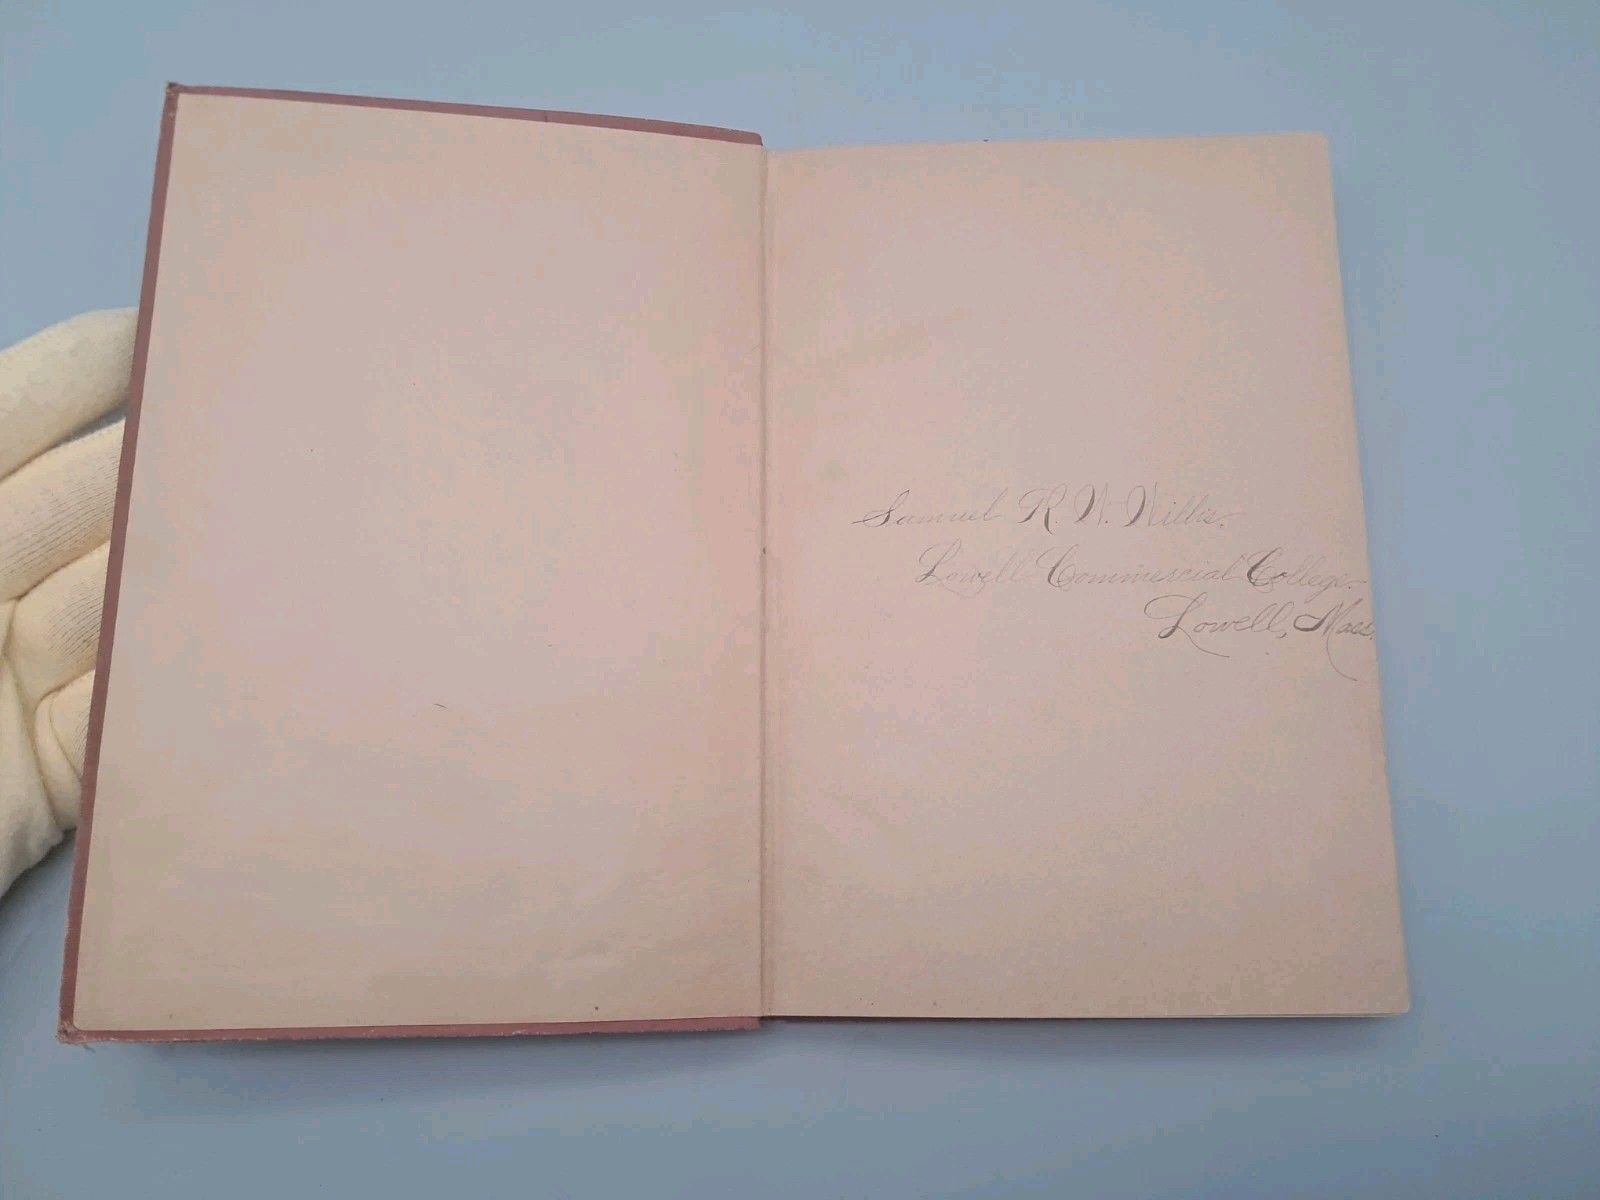 Samuel R. W. Willis.
Lowell Commercial College.
Lowell, Mass.